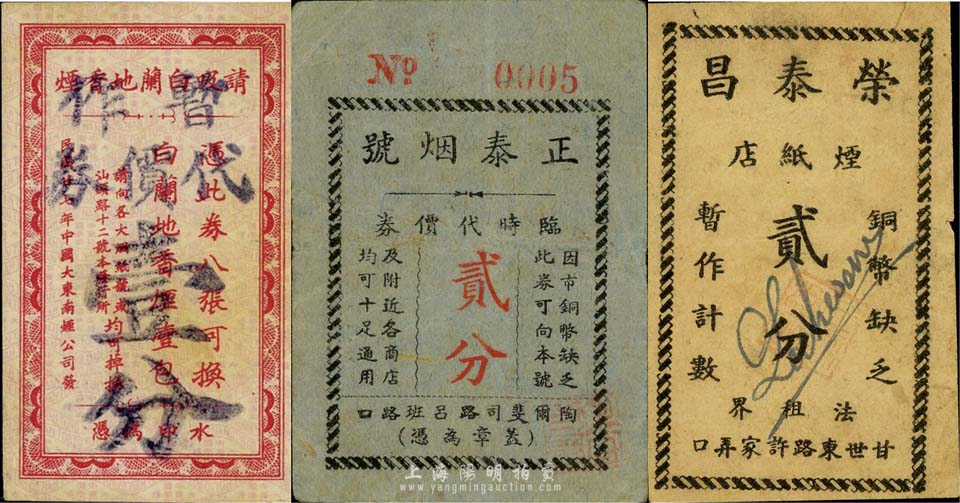 請吸白蘭地香煙
憑此券八張可換
白蘭地香煙壹包
汕頭路十二號本
均可掉換
民國廿七年中國大東南煙公司發
水印為憑
暫作
代價券
壹分
№ 0005
正泰烟號
臨時代價券
因市銅幣缺乏
此券可向本號
貳分
及附近各商店
均可十足通用
陶爾斐司路呂班路口
(蓋章為憑)
榮泰昌
煙紙店
銅幣缺乏
貳分
暫作計數
法租界
甘世東路許家弄口
上海陽明拍賣
www.yangmingauction.com